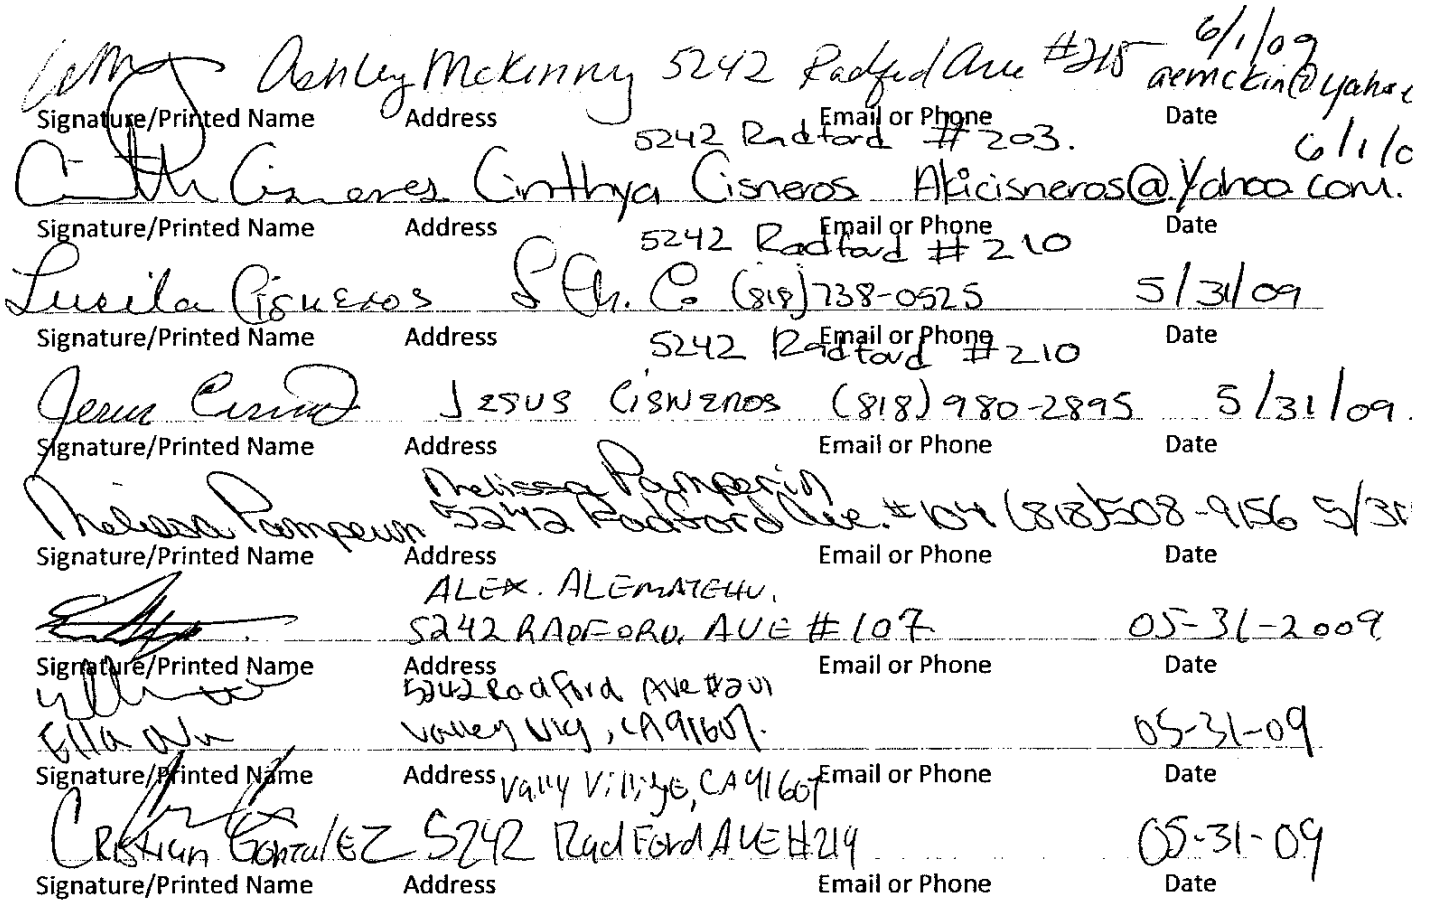 6/1/09
Ashley McKinny 5242 Radford Ave #215 aemckin@yahoo
Signature/Printed Name Address Email or Phone Date
5242 Radford #203. 6/1/0
Cinth Cisneros Cinthya Cisneros Akicisneros@Yahoo.com.
Signature/Printed Name Address Email or Phone Date
5242 Radford #210
Lucila Cisneros (818)738-0525 5/31/09
Signature/Printed Name Address Email or Phone Date
5242 Radford #210
Jesus Cisneros (818)980-2895 5/31/09.
Signature/Printed Name Address Email or Phone Date
Melissa Pamperin
Melissa Pamperin 5242 Radford Ave. #104 (818)508-9156 5/31
Signature/Printed Name Address Email or Phone Date
ALEX. ALEMAYEHU.
5242 RADFORD. AVE #107 05-31-2009
Signature/Printed Name Address Email or Phone Date
5242 Radford Ave #201
Ella Valley Vlg, CA 91607. 05-31-09
Signature/Printed Name Address Email or Phone Date
Vally Village, CA 91607
Cristian Gonzalez 5242 Radford AVE #219 05-31-09
Signature/Printed Name Address Email or Phone Date